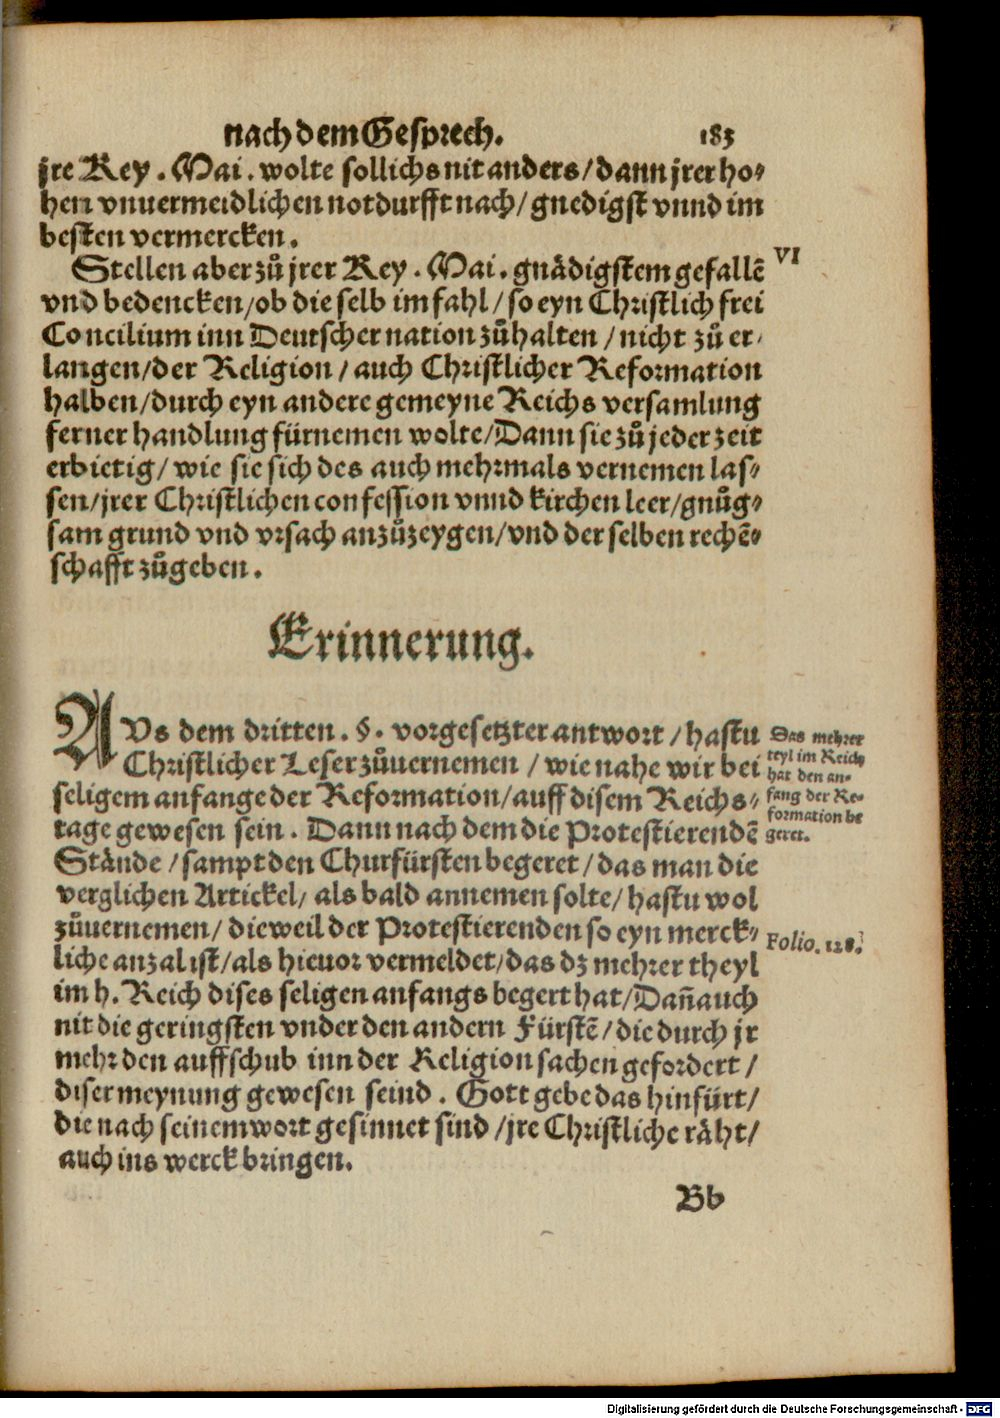 nach dem Gesprech. 183
jre Key. Mai. wolte sollichs nit anders/dann jrer ho-
hen vnuermeidlichen notdurfft nach/ gnedigst vnnd im
besten vermercken.
Stellen aber zů jrer Key. Mai. gnädigstem gefallẽ
VI
vnd bedencken/ob die selb im fahl/so eyn Christlich frei
Concilium inn Deutscher nation zůhalten/nicht zů er-
langen/der Religion/auch Christlicher Reformation
halben/durch eyn andere gemeyne Reichs versamlung
ferner handlung fürnemen wolte/Dann sie zů jeder zeit
erbietig/wie sie sich des auch mehrmals vernemen las-
sen/jrer Christlichen confession vnnd kirchen leer/gnůg-
sam grund vnd vrsach anzůzeygen/vnd der selben rechẽ-
schafft zůgeben.
Erinnerung.
AVs dem dritten. §. vorgesetzter antwort/hastu
Christlicher Leser zůuernemen/wie nahe wir bei
seligem anfange der Reformation/auff disem Reichs-
tage gewesen sein. Dann nach dem die Protestierendẽ
Stände/sampt den Churfürsten begeret/das man die
verglichen Artickel/als bald annemen solte/hastu wol
zůuernemen/dieweil der Protestierenden so eyn merck-
liche anzal ist/als hieuor vermeldet/das dz mehrer theyl
im h. Reich dises seligen anfangs begert hat/Dañ auch
nit die geringsten vnder den andern Fürstẽ/die durch jr
mehr den auffschub inn der Religion sachen gefordert/
diser meynung gewesen seind. Gott gebe das hinfürt/
die nach seinem wort gesinnet sind/jre Christliche räht/
auch ins werck bringen.
Das mehrer
teyl im Reich
hat den an-
fang der Re-
formation be
geret.
Folio. 128.
Bb
Digitalisierung gefördert durch die Deutsche Forschungsgemeinschaft - DFG